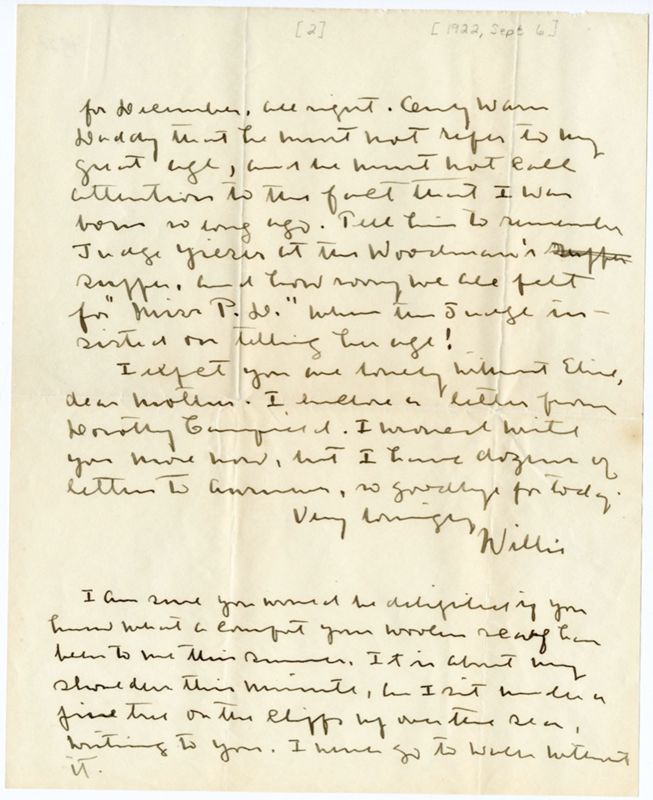 [2] [1922, Sept 6]
for December, all right. Only warn
Daddy that he must not refer to my
great age, and he must not call
attention to the fact that I was
born so long ago. Tell him to remember
Judge Yeiser at the Woodman's supper
supper, and how sorry we all felt
for "Miss P. D." when the Judge in-
sisted on telling her age!
I expect you are lonely without Elsie,
dear mother. I enclose a letter from
Dorothy Canfield. I would write
you more now, but I have dozens of
letters to answer, so goodbye for today.
Very lovingly
Willie
I am sure you would be delighted if you
knew what a comfort your woolen scarf has
been to me this summer. It is about my
shoulders this minute, as I sit under a
pine tree on the cliffs up over the sea,
writing to you. I never go to walk without
it.